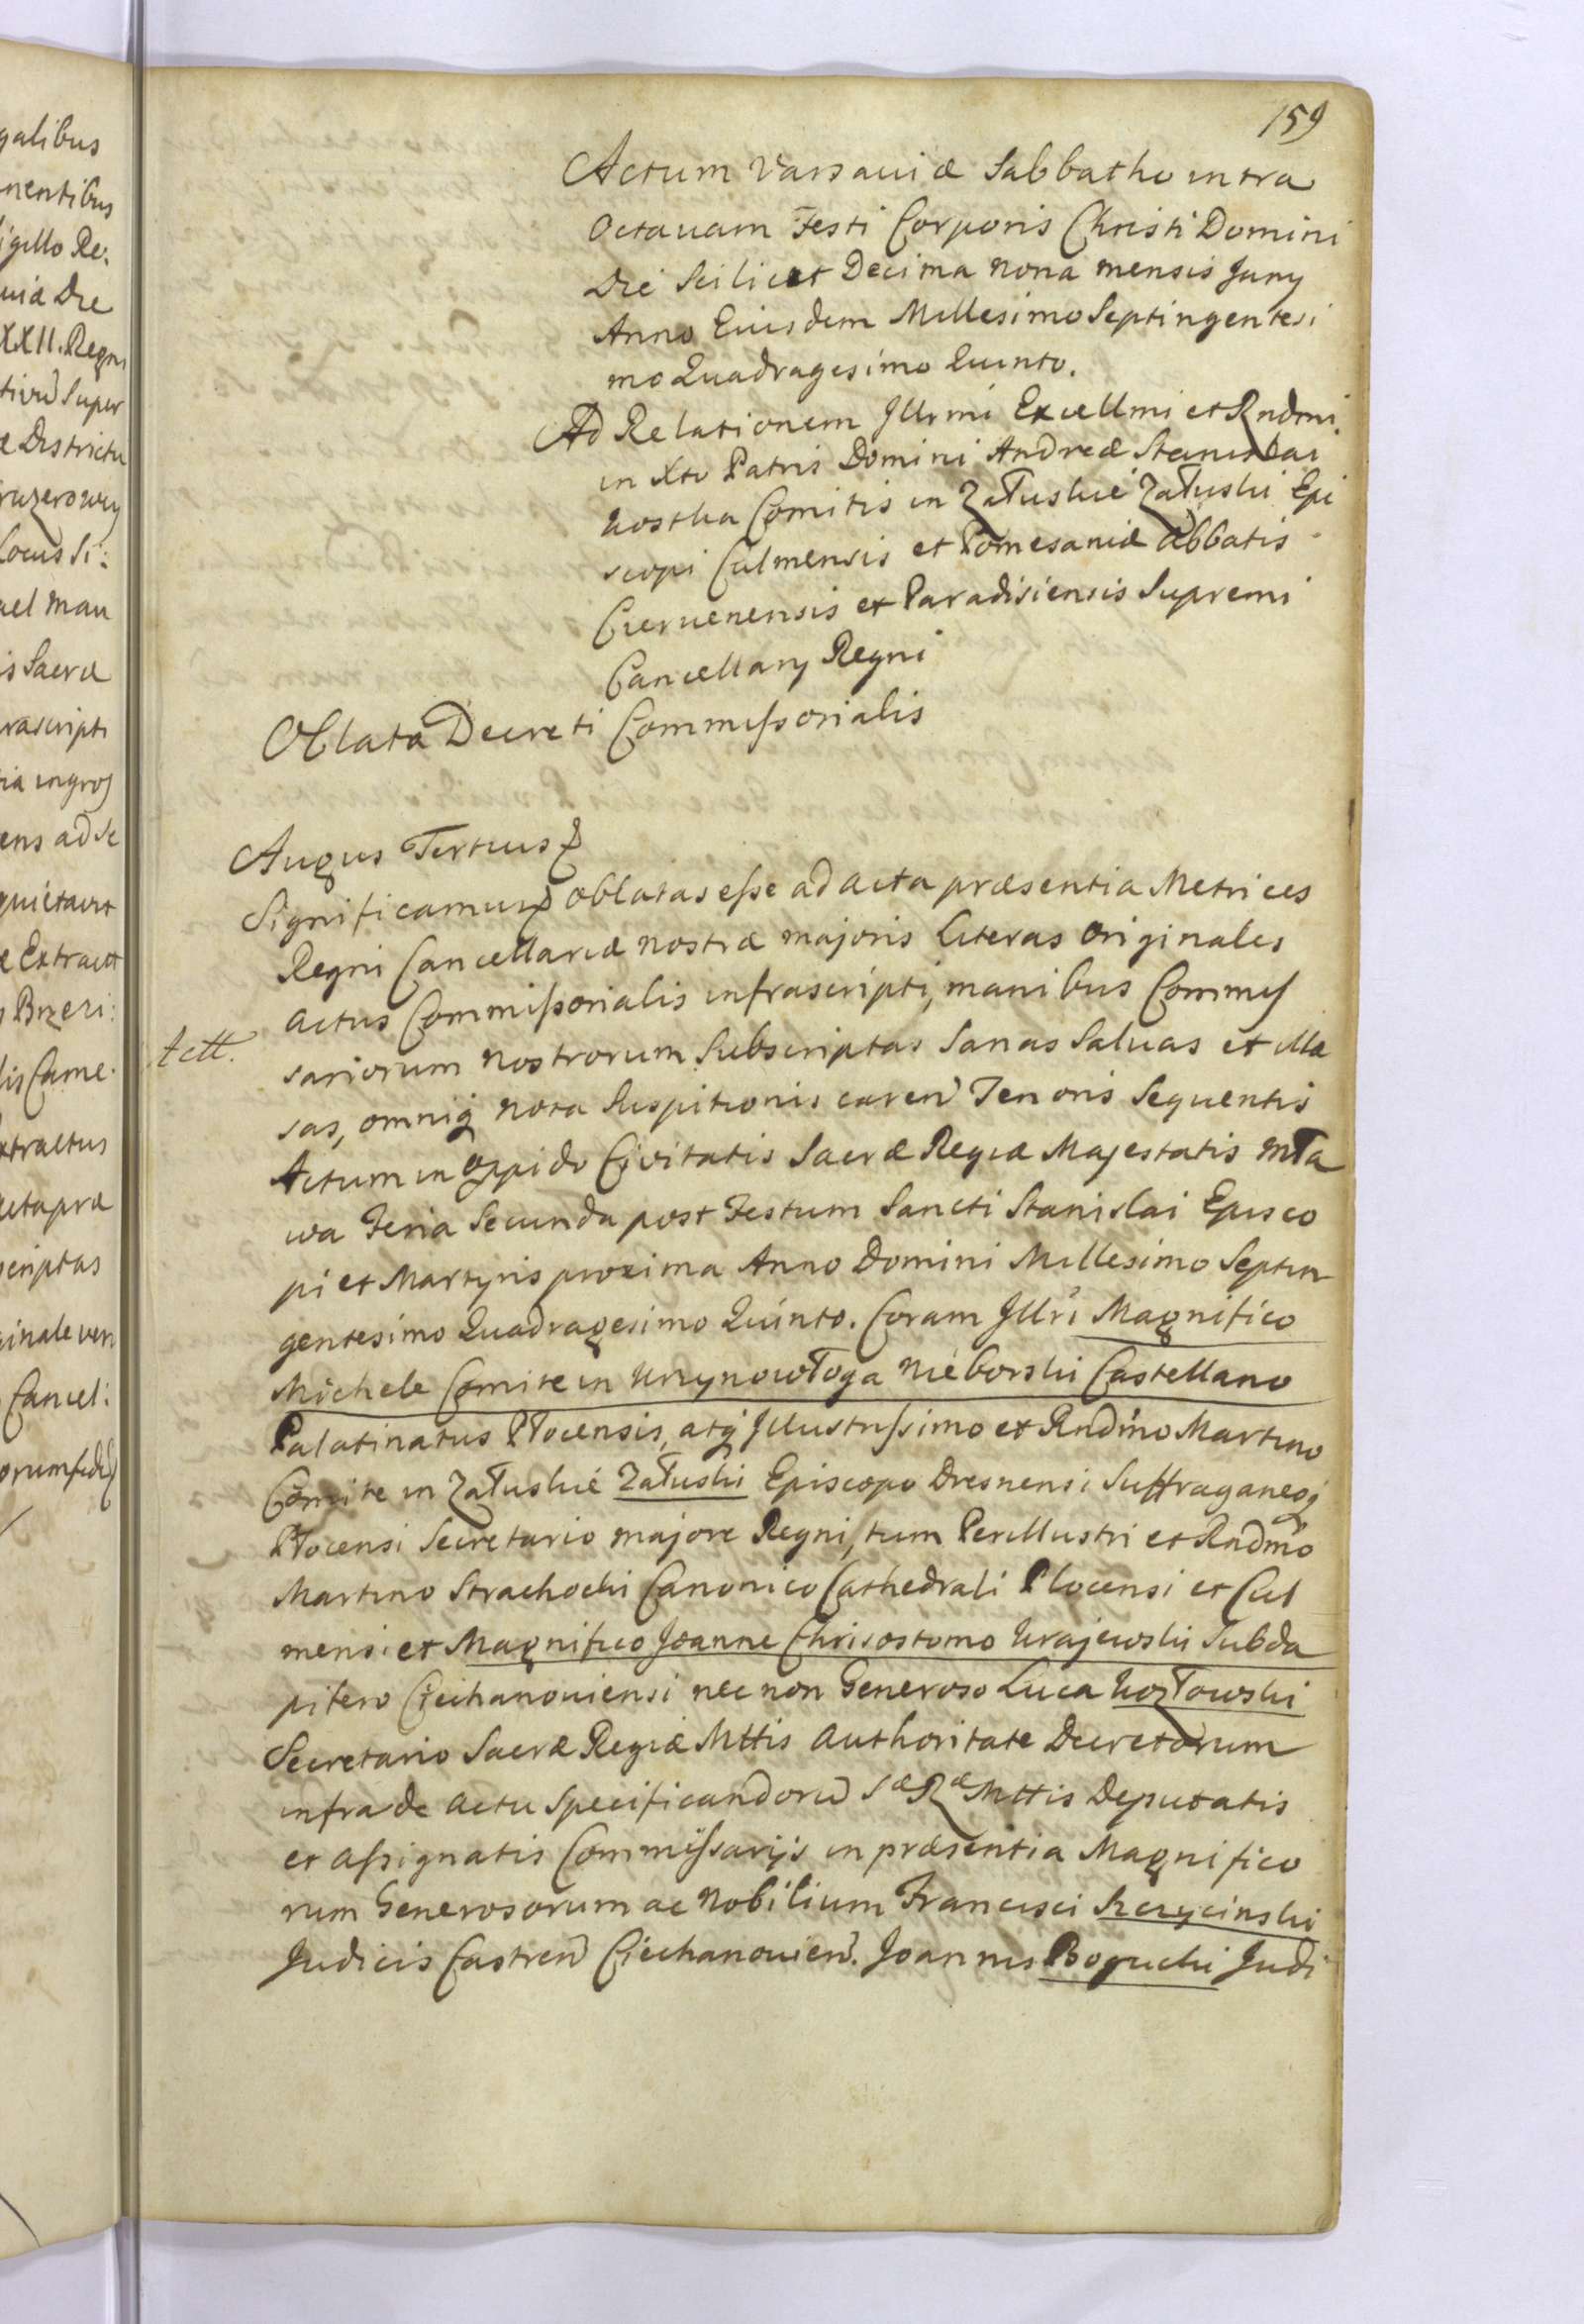 galibus
nentibus
igillo Re:
uiæ Die
XXII. Regni
Super
æ Districtu
Locus Si:
ael Mau
is Sacræ
rascripti
ia ingros
ens ad Se
quietavit
e Extract
Brzezi:
lis Came:
xtractus
acta præ
scriptas
ginale vero
Cancel:
159
Actum Varsauiæ Sabbatho intra
Octauam Festi Corporis Christi Domini
Die Scilicet Decima Nona mensis Juny
Anno Eiusdem Millesimo Septingentesi
mo Quadragesimo Quinto.
Ad Relationem Jllrmi Excellmi et Rndmi
in Xto Patris Domini Andreæ Stanislai
Kostka Comitis in Załuskie Załuski Epi
scopi Culmensis et Pomesaniæ Abbatis
Czervenensis et Paradisiensis Supremi
Cancellary Regni
Oblata Decreti Commissorialis
Augus Tertius
Significamus oblatas esse ad acta præsentia Metrices
Regni Cancellariæ nostræ majoris Literas Originales
actus Commissorialis infrascripti, manibus Commis
sariorum nostrorum Subscriptas Sanas Saluas et illæ
sas, omniq nota Suspitionis caren Tenoris Sequentis
Actt.
Actum in Oppido Civitatis Sacræ Regiæ Majestatis Mła
wa Feria Secunda post Festum Sancti Stanislai Episco
pi et Martyris proxima Anno Domini Millesimo Septin
gentesimo Quadragesimo Quinto. Coram Jllri Magnifico
Michele Comite in Krzynowłoga Nieborski Castellano
Palatinatus Płocensis, atq Jllustrissimo et Rndmo Martino
Comite in Załuskie Załuski Episcopo Dresnensi Suffraganeoq
Płocensi Secretario majore Regni, tum Perillustri et Rndmo
Martino Strachocki Canonico Cathedrali Plocensi et Cul
mensi et Magnifico Joanne Chrisostomo Krajewski Subda
pifero Ciechanouiensi nec non Generoso Luca Kozłowski
Secretario Sacræ Regiæ Mttis Authoritate Decretorum
infra de actu Specificandoru SæRæ Mttis Deputatis
et assignatis Commissarijs in præsentia Magnifico
rum Generosorum ac Nobilium Francisci Szczycinski
Judicis Castren Ciechanouien. Joannis Bogucki Judi